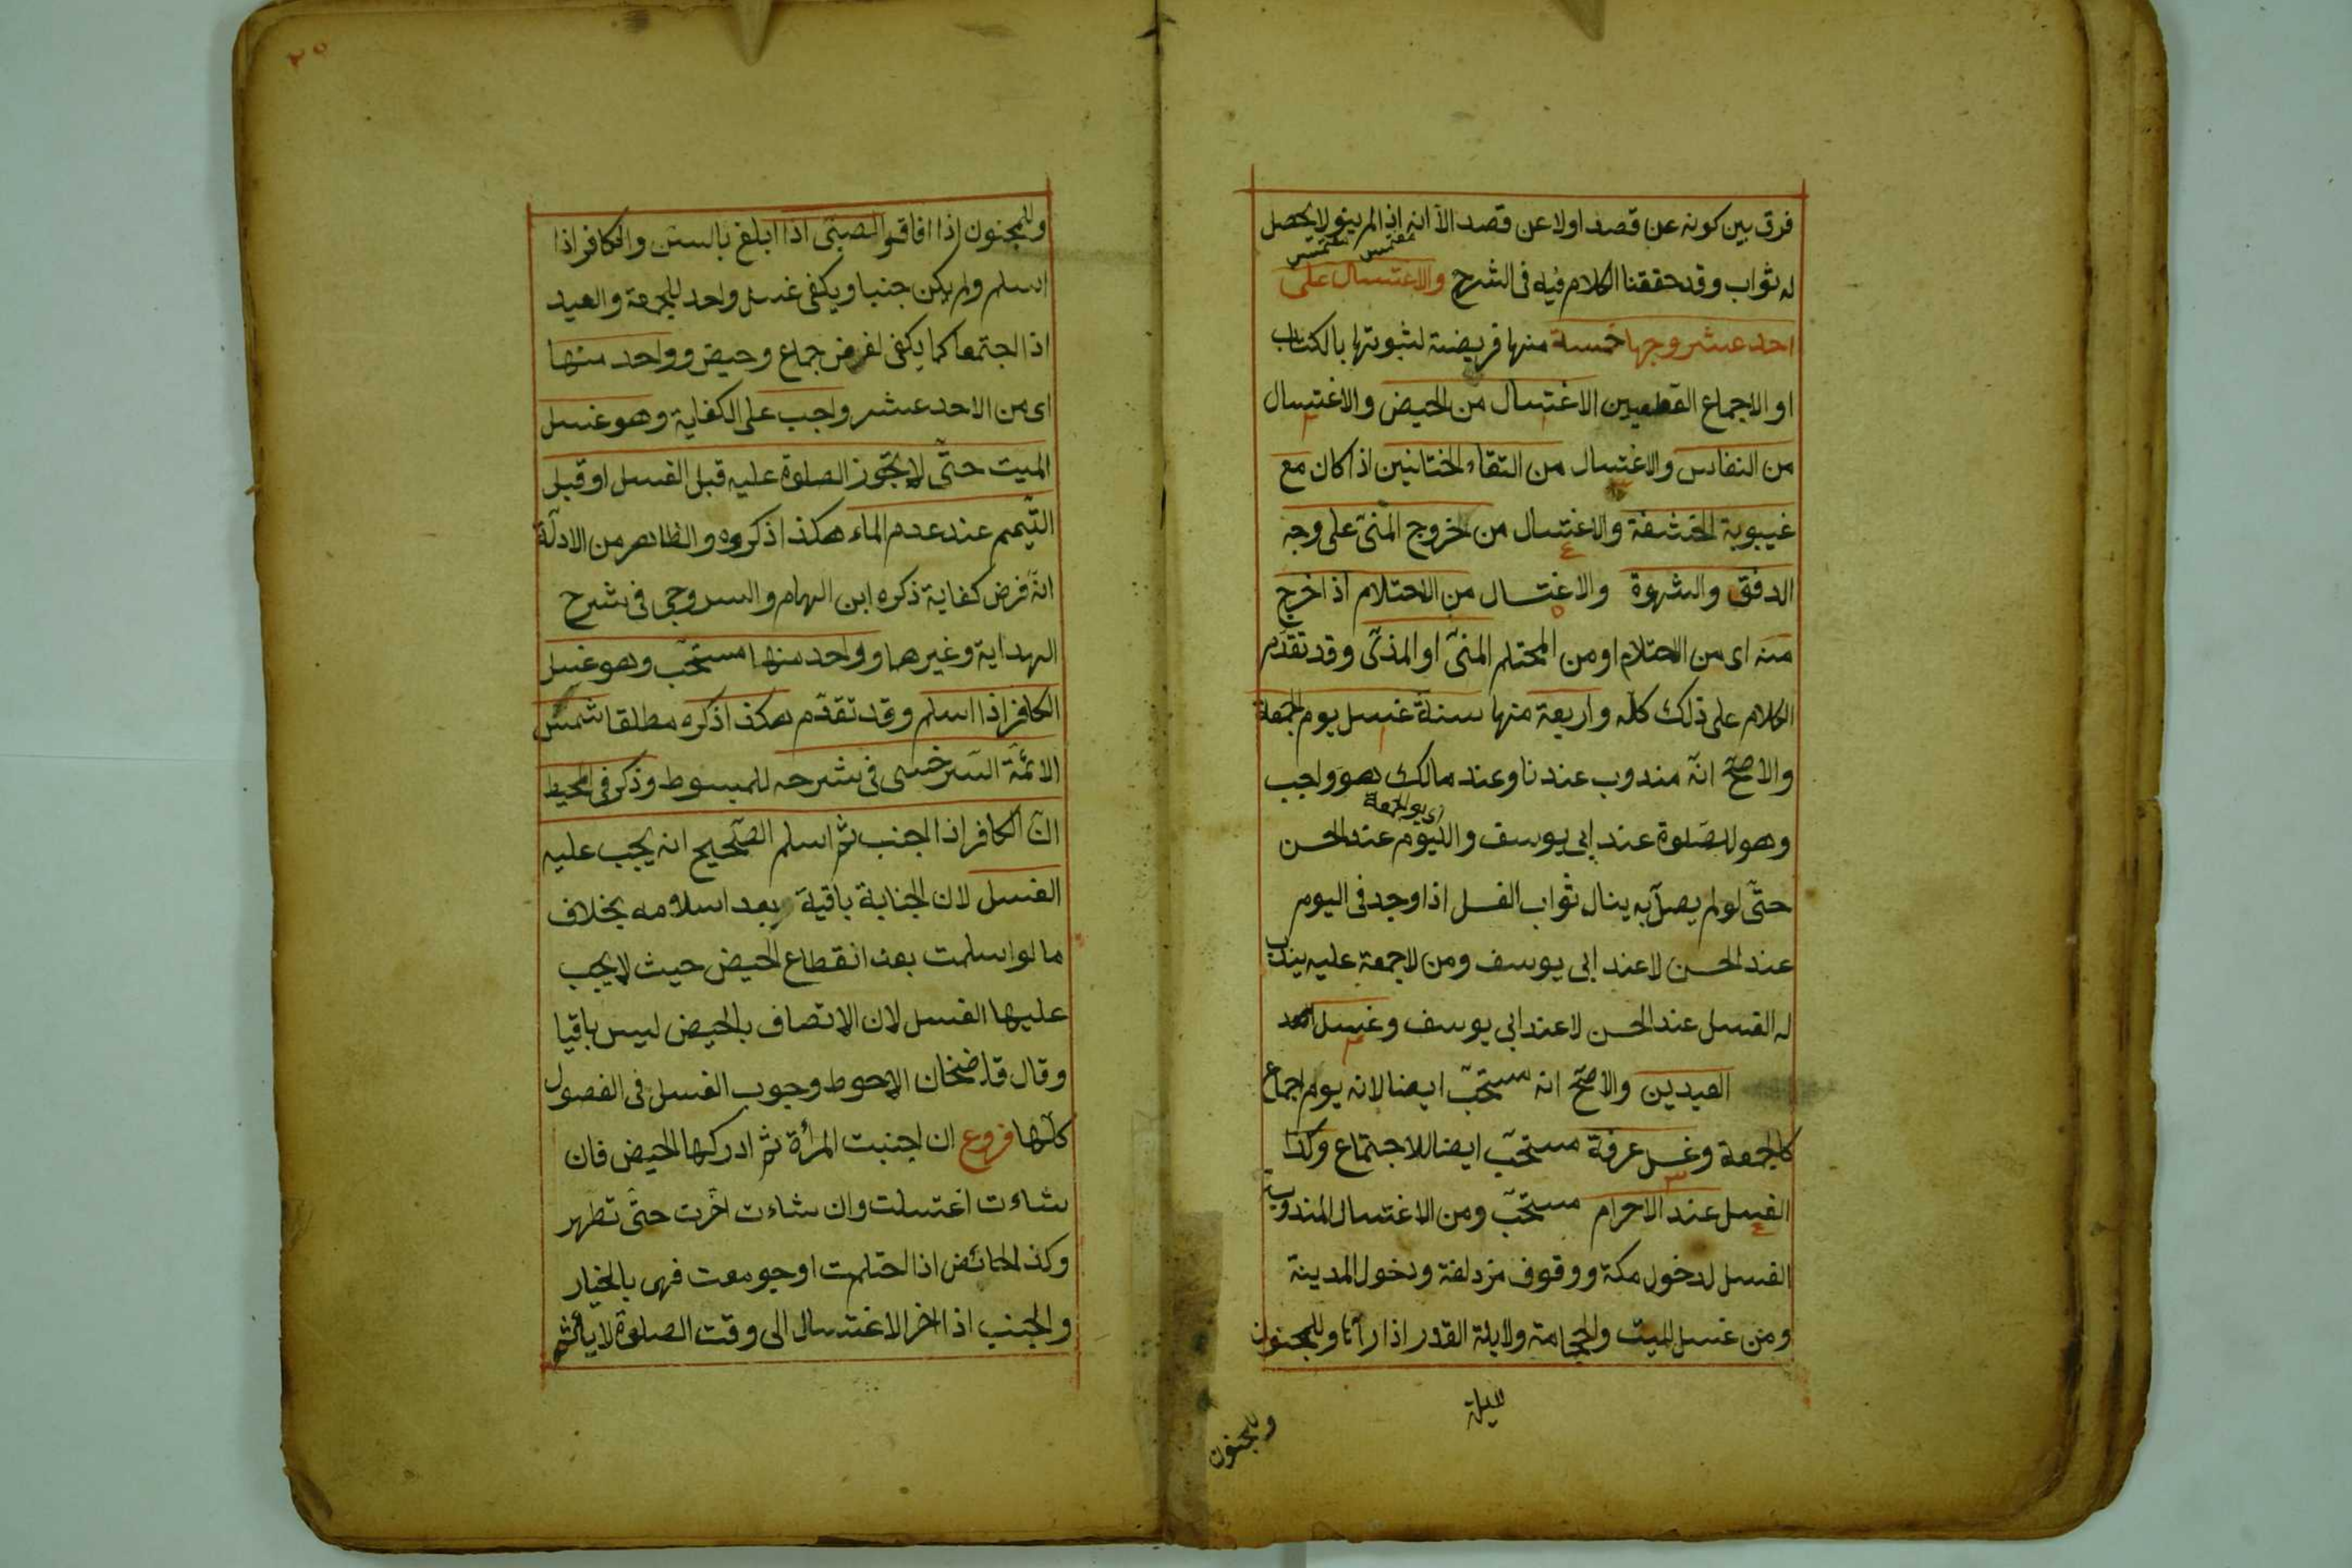 فرق بين كونه عن قصد اولا عن قصد الا انه اذا لم ينو لا يحصل
له ثواب وقد حققنا الكلام فيه فى الشرح والاغتسال على
احد عشر وجها خمسة منها فريضة لثبوتها بالكتاب
او الاجماع القطعيين الاغتسال من الحيض والاغتسال
من النفاس والاغتسال من التقاء الختانين اذا كان مع
غيبوبة الحشفة والاغتسال من خروج المنى على وجه
الدفق والشهوة والاغتسال من الاحتلام اذا خرج
منه اى من الاحتلام او من المحتلم المنىّ او المذىّ وقد تقدم
الكلام على ذلك كله واربعة منها سنة غسل يوم الجمعة
والاصحّ انّه مندوب عندنا وعند مالك هو واجب
اى يوم الجمعة
وهو للصلوة عند ابى يوسف واليوم عند الحسن
حتّى لو لم يصلّ به ينال ثواب الغسل اذا وجد فى اليوم
عند الحسن لا عند ابى يوسف ومن لا جمعة عليه يندب
له الغسل عند الحسن لا عند ابى يوسف وغسل
العيدين والاصحّ انه مستحبّ ايضا لانه يوم اجماع
كالجمعة وغسل عرفة مستحبّ ايضا للاجتماع وكذا
الغسل عند الاحرام مستحبّ ومن الاغتسال المندوبة
الغسل لدخول مكة ووقوف مزدلفة ودخول المدينة
ومن غسل الميت والحجامة ولايلة القدر اذا رآها وللمجنون
ليلة
وللمجنون
٢٥
وللمجنون اذا افاق والصبىّ اذا ابلغ بالسن والكافر اذا
اسلم ولم يكن جنبا ويكفى غسل واحد للجمعة والعيد
اذا اجتمعا كما يكفى لفرض جماع وحيض وواحد منها
اى من الاحد عشر واجب على الكفاية وهو غسل
الميت حتّى لا يجوز الصلوة عليه قبل الغسل او قبل
التّيمم عند عدم الماء هكذا ذكروه والظاهر من الادلّة
انّه فرض كفاية ذكره ابن الهمام والسروجى فى شرح
الهداية وغيرهما وواحد منها مستحبّ وهو غسل
الكافر اذا اسلم وقد تقدّم هكذا ذكره مطلقا شمس
الائمّة السّرخسى فى شرحه للمبسوط وذكر فى المحيط
انّ الكافر اذا اجنب ثم اسلم الصّحيح انه يجب عليه
الغسل لان الجنابة باقية بعد اسلامه بخلاف
ما لو اسلمت بعد انقطاع الحيض حيث لا يجب
عليها الغسل لان الاتصاف بالحيض ليس باقيا
وقال قاضيخان الاحوط وجوب الغسل فى الفصول
كلّها فروع ان اجنبت المرأة ثم ادركها الحيض فان
شاءت اغتسلت وان شاءت اخّرت حتّى تطهر
وكذا الحائض اذا احتلمت او جومعت فهى بالخيار
والجنب اذا اخر الاغتسال الى وقت الصلوة لا يأثم